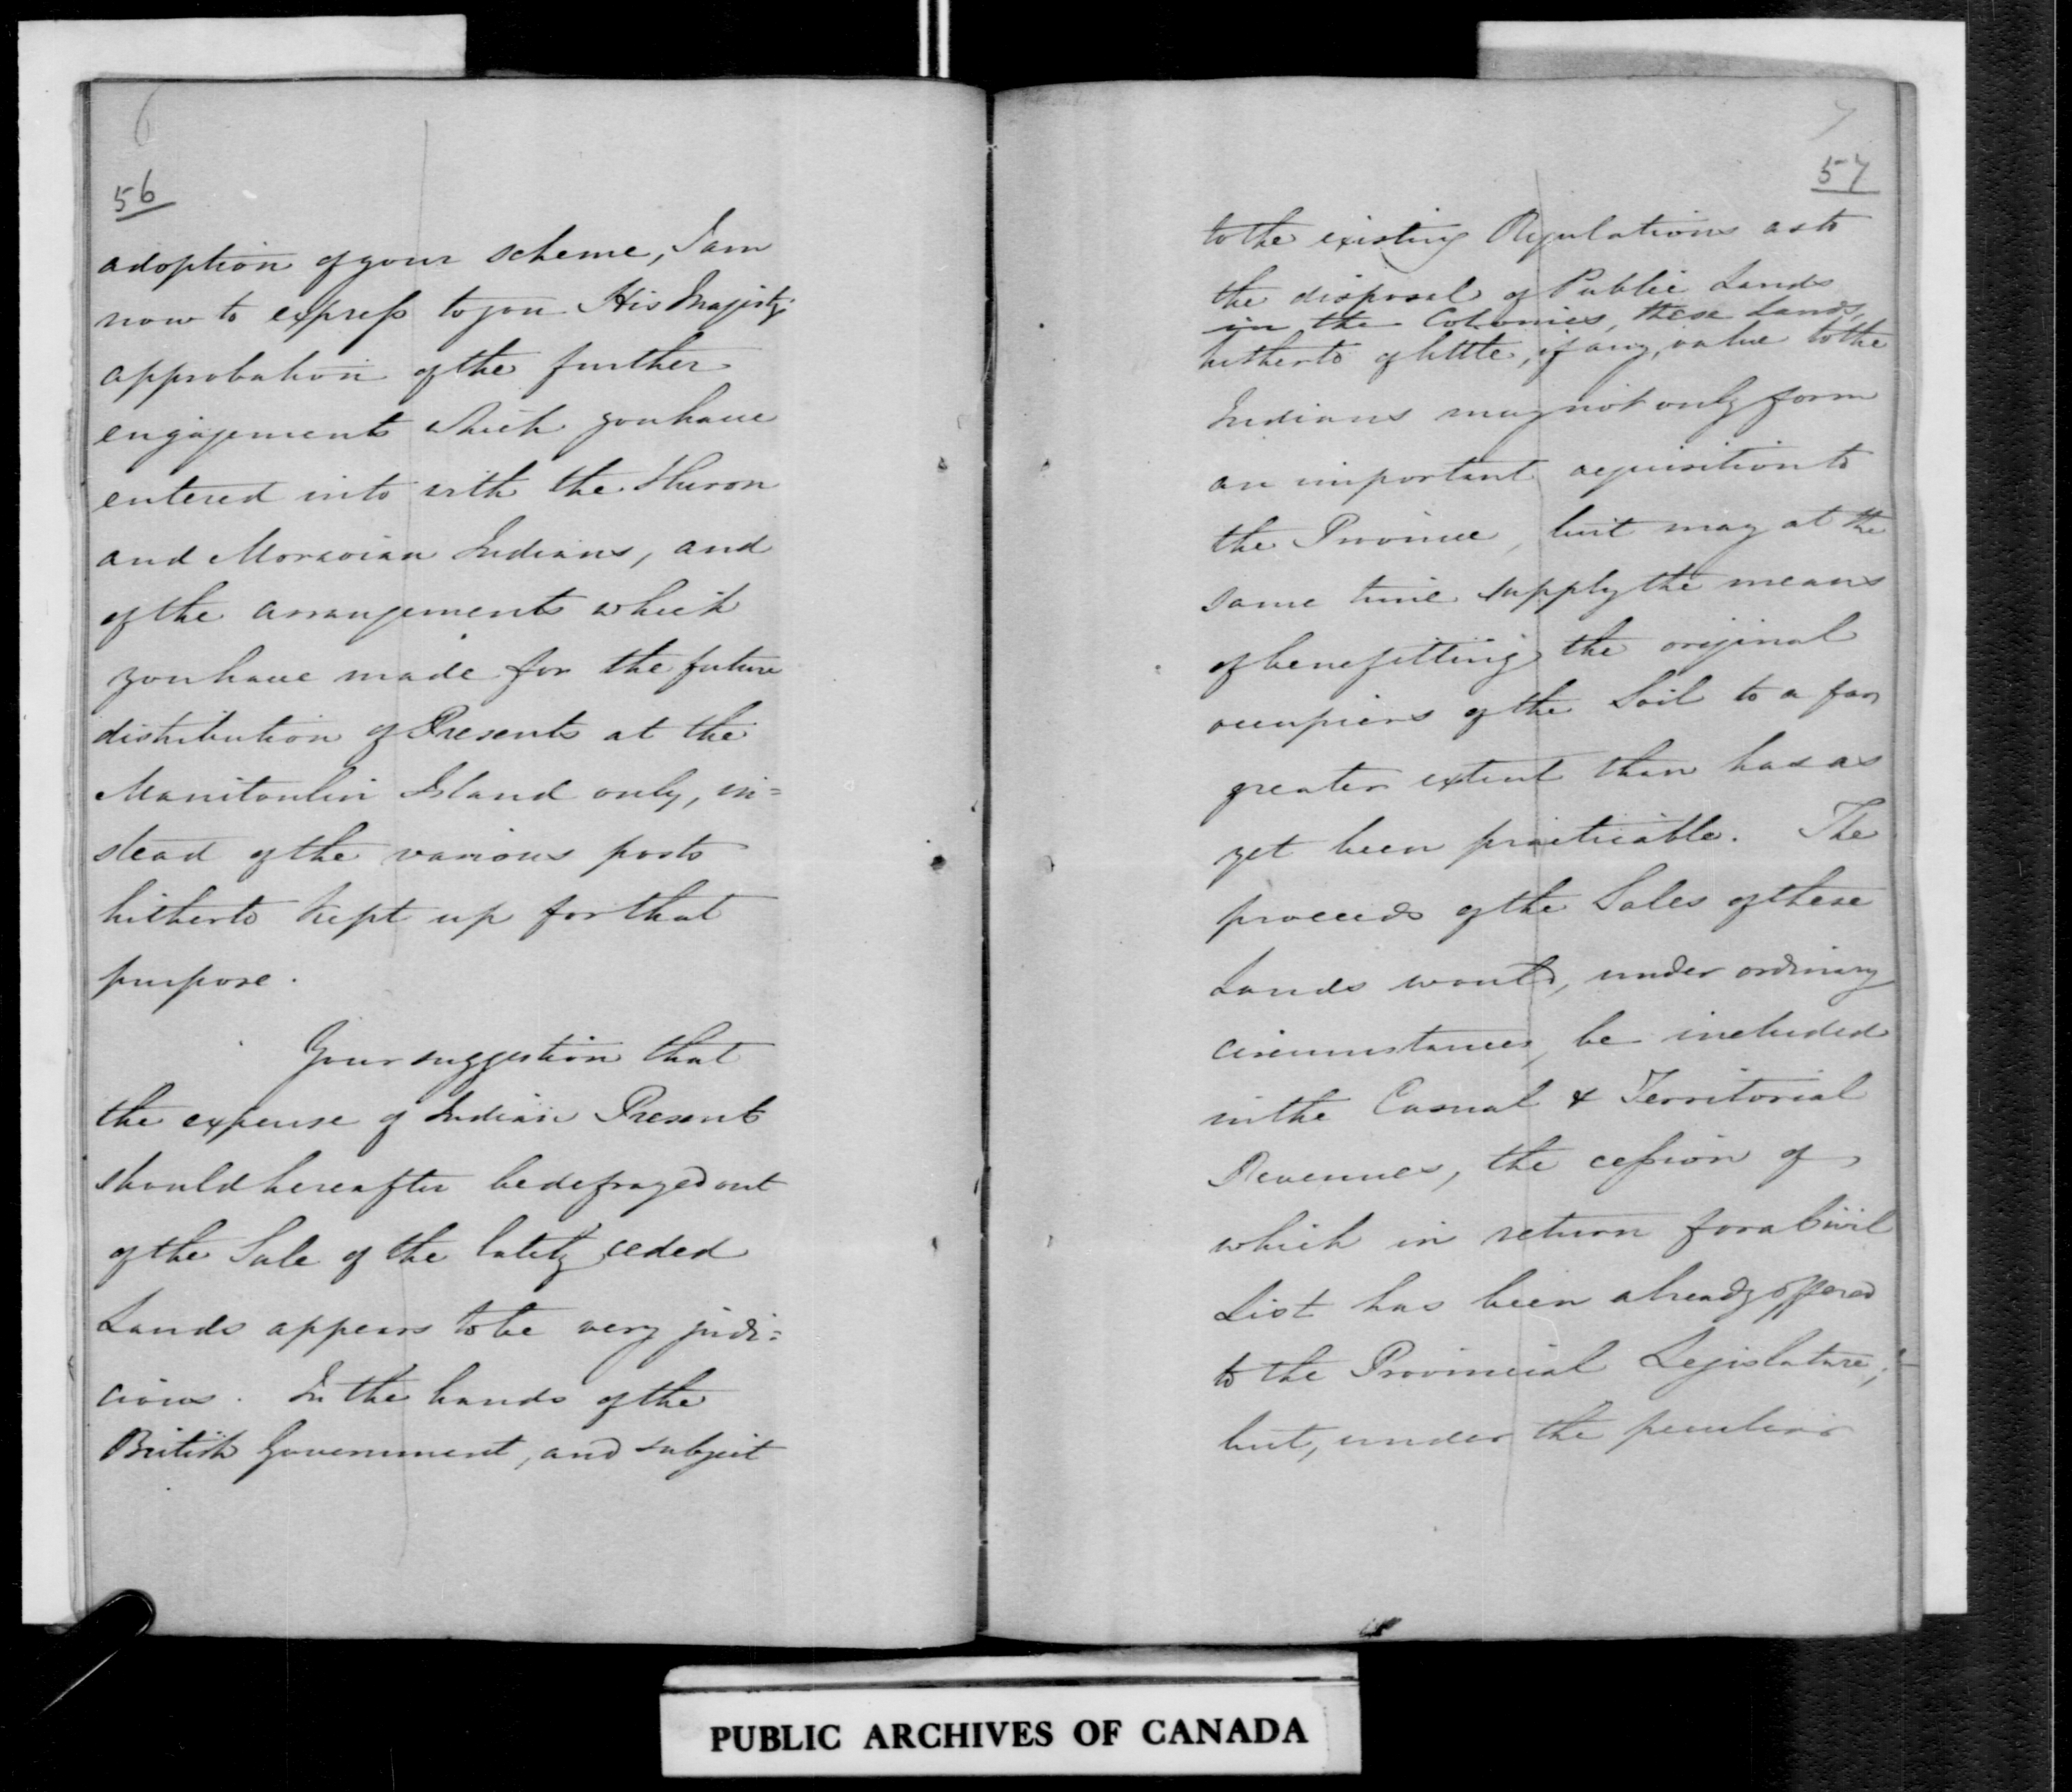 6
56
adoption of your scheme, I am
now to express to you His Majesty's
approbation of the further
engagements which you have
entered into with the Huron
and Moravian Indians, and
of the arrangements which
you have made for the future
distribution of Presents at the
Manitoulin Island only, in=
stead of the various posts
hitherto kept up for that
purpose.
Your suggestion that
the expense of Indian Presents
should hereafter be defrayed out
of the Sale of the lately ceded
Lands appears to be very judi=
cious. In the hands of the
British Government, and subject
7
57
to the existing Regulations as to
the disposal of Public Lands
in the Colonies, these Lands,
hitherto of little, if any, value to the
Indians may not only form
an important acquisition to
the Province, but may at the
same time supply the means
of benefitting the original
occupiers of the Soil to a far
greater extent than has as
yet been practicable. The
proceeds of the Sales of these
Lands would, under ordinary
circumstances, be included
in the Casual & Territorial
Revenues, the cession of
which in return for a Civil
List has been already offered
to the Provincial Legislature;
but, under the peculiar
PUBLIC ARCHIVES OF CANADA